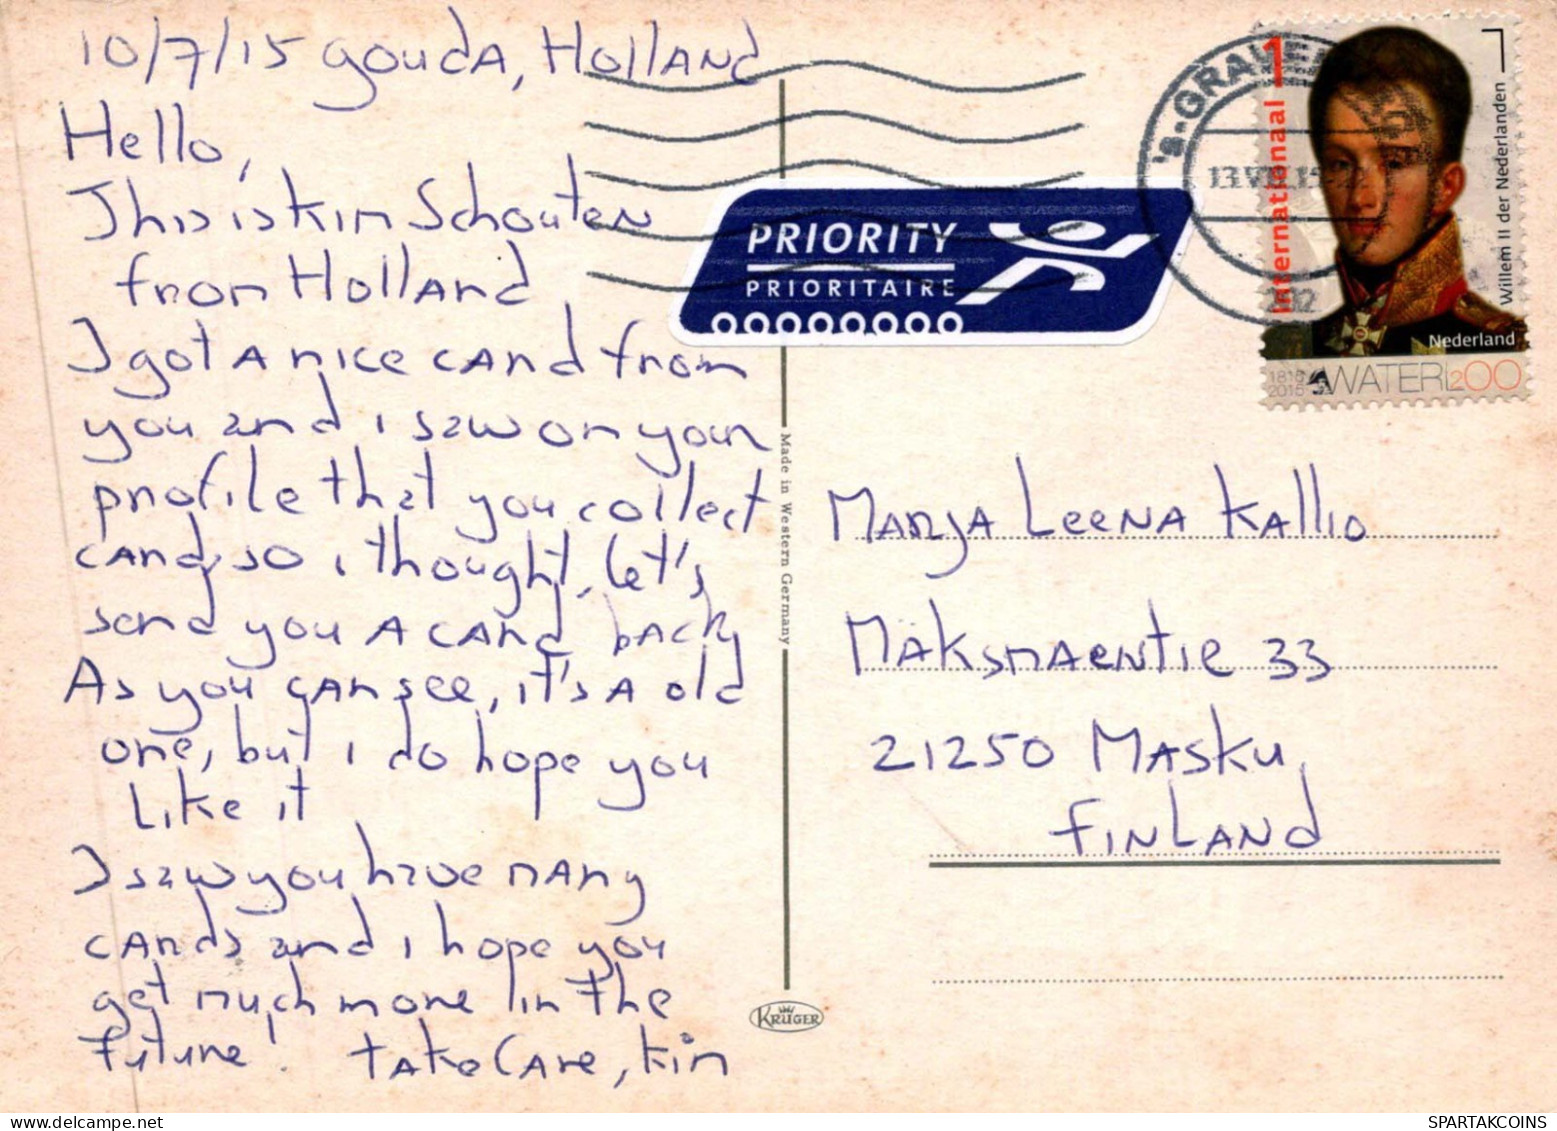 10/7/15 Gouda, Holland
Hello,
This is Kim Schouten
from Holland
I got a nice card from
you and i saw on your
profile that you collect
card, so i thought, let's
send you a card back
As you can see, it's a old
one, but i do hope you
like it
I saw you have many
cards and i hope you
get much more in the
future! take care, Kim
PRIORITY
PRIORITAIRE
's-GRAVE
13.VII.15
1
internationaal
Willem II der Nederlanden
Nederland
WATERL200
Made in Western Germany
Marja Leena Kallio
Mäksmäentie 33
21250 Masku
Finland
KRÜGER
SPARTAKCOINS